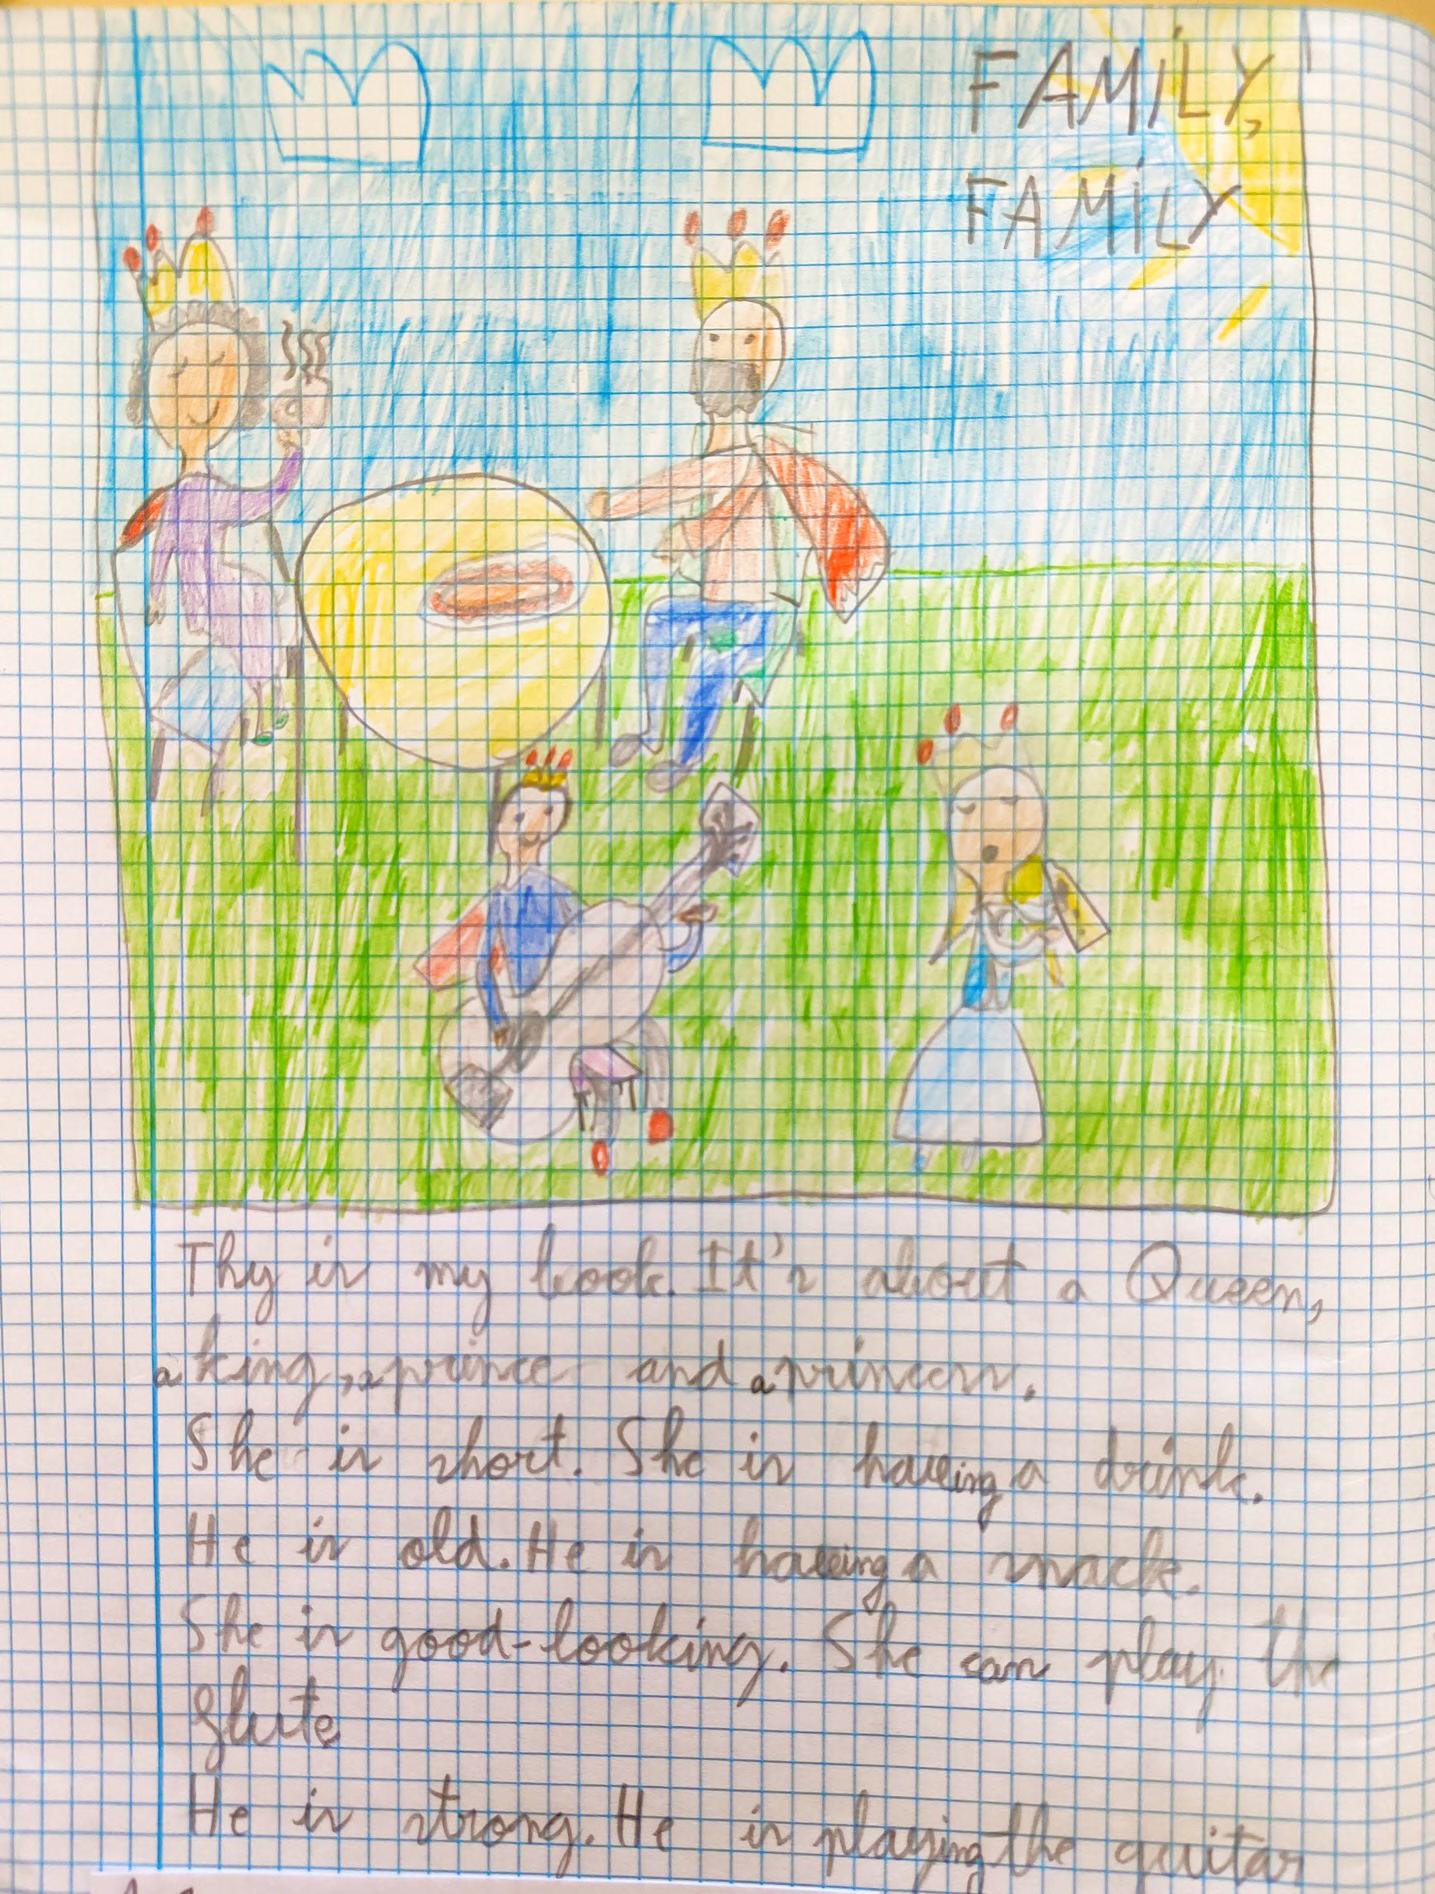 FAMILY,
FAMILY
Thy is my book. It's about a Queen,
a king, a prince and a princess.
She is short. She is haveing a drink.
He is old. He is haveing a snack.
She is good-looking. She can play the
flute
He is strong. He is playing the guitar